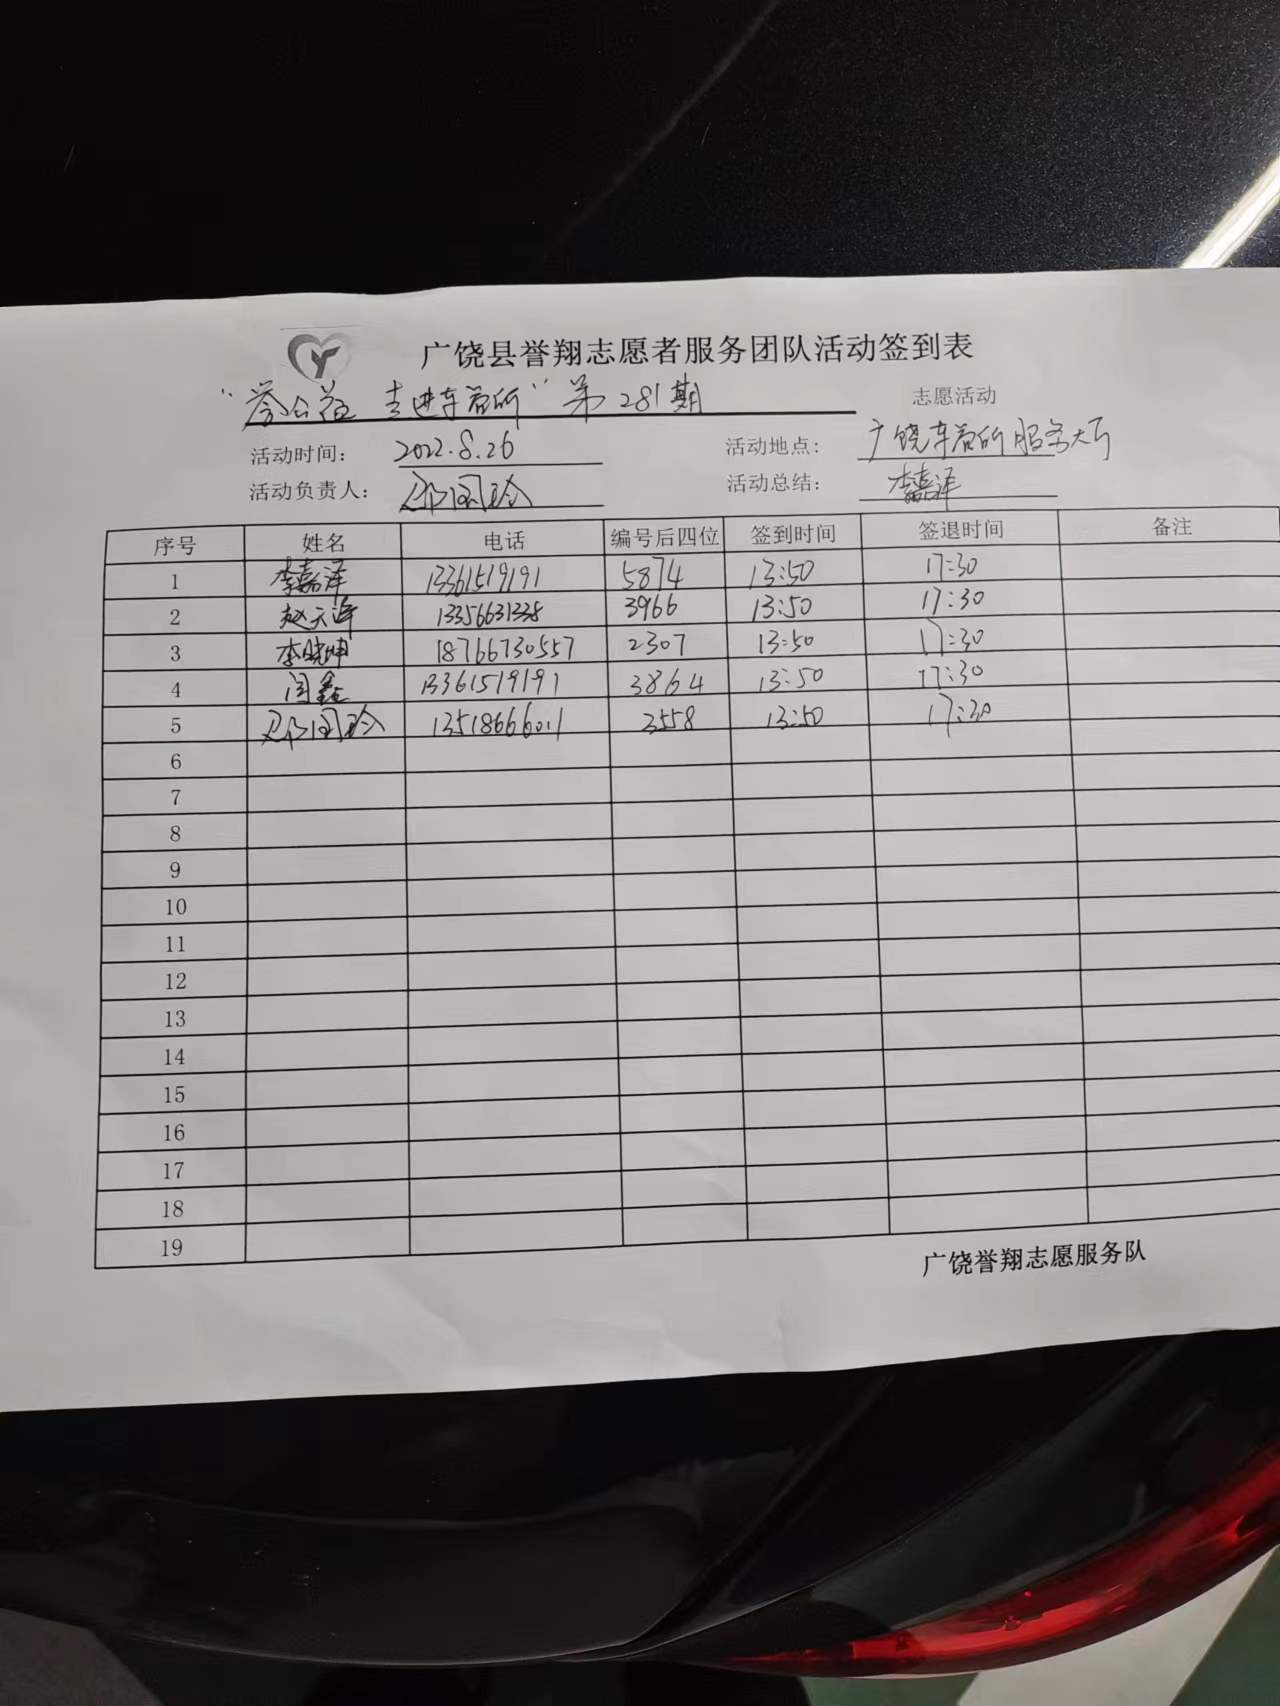 广饶县誉翔志愿者服务团队活动签到表
"誉公益 走进车管所"第281期 志愿活动
活动时间: 2022.8.26 活动地点: 广饶车管所服务大厅
活动负责人: 活动总结: 李嘉泽
序号 姓名 电话 编号后四位 签到时间 签退时间 备注
1 李嘉泽 13361519191 5874 13:50 17:30
2 赵天 3966 13:50 17:30
3 李晓坤 18766730557 2307 13:50 17:30
4 闫鑫 13361519191 3864 13:50 17:30
5 13518666011 3558 13:50 17:30
6
7
8
9
10
11
12
13
14
15
16
17
18
19
广饶誉翔志愿服务队